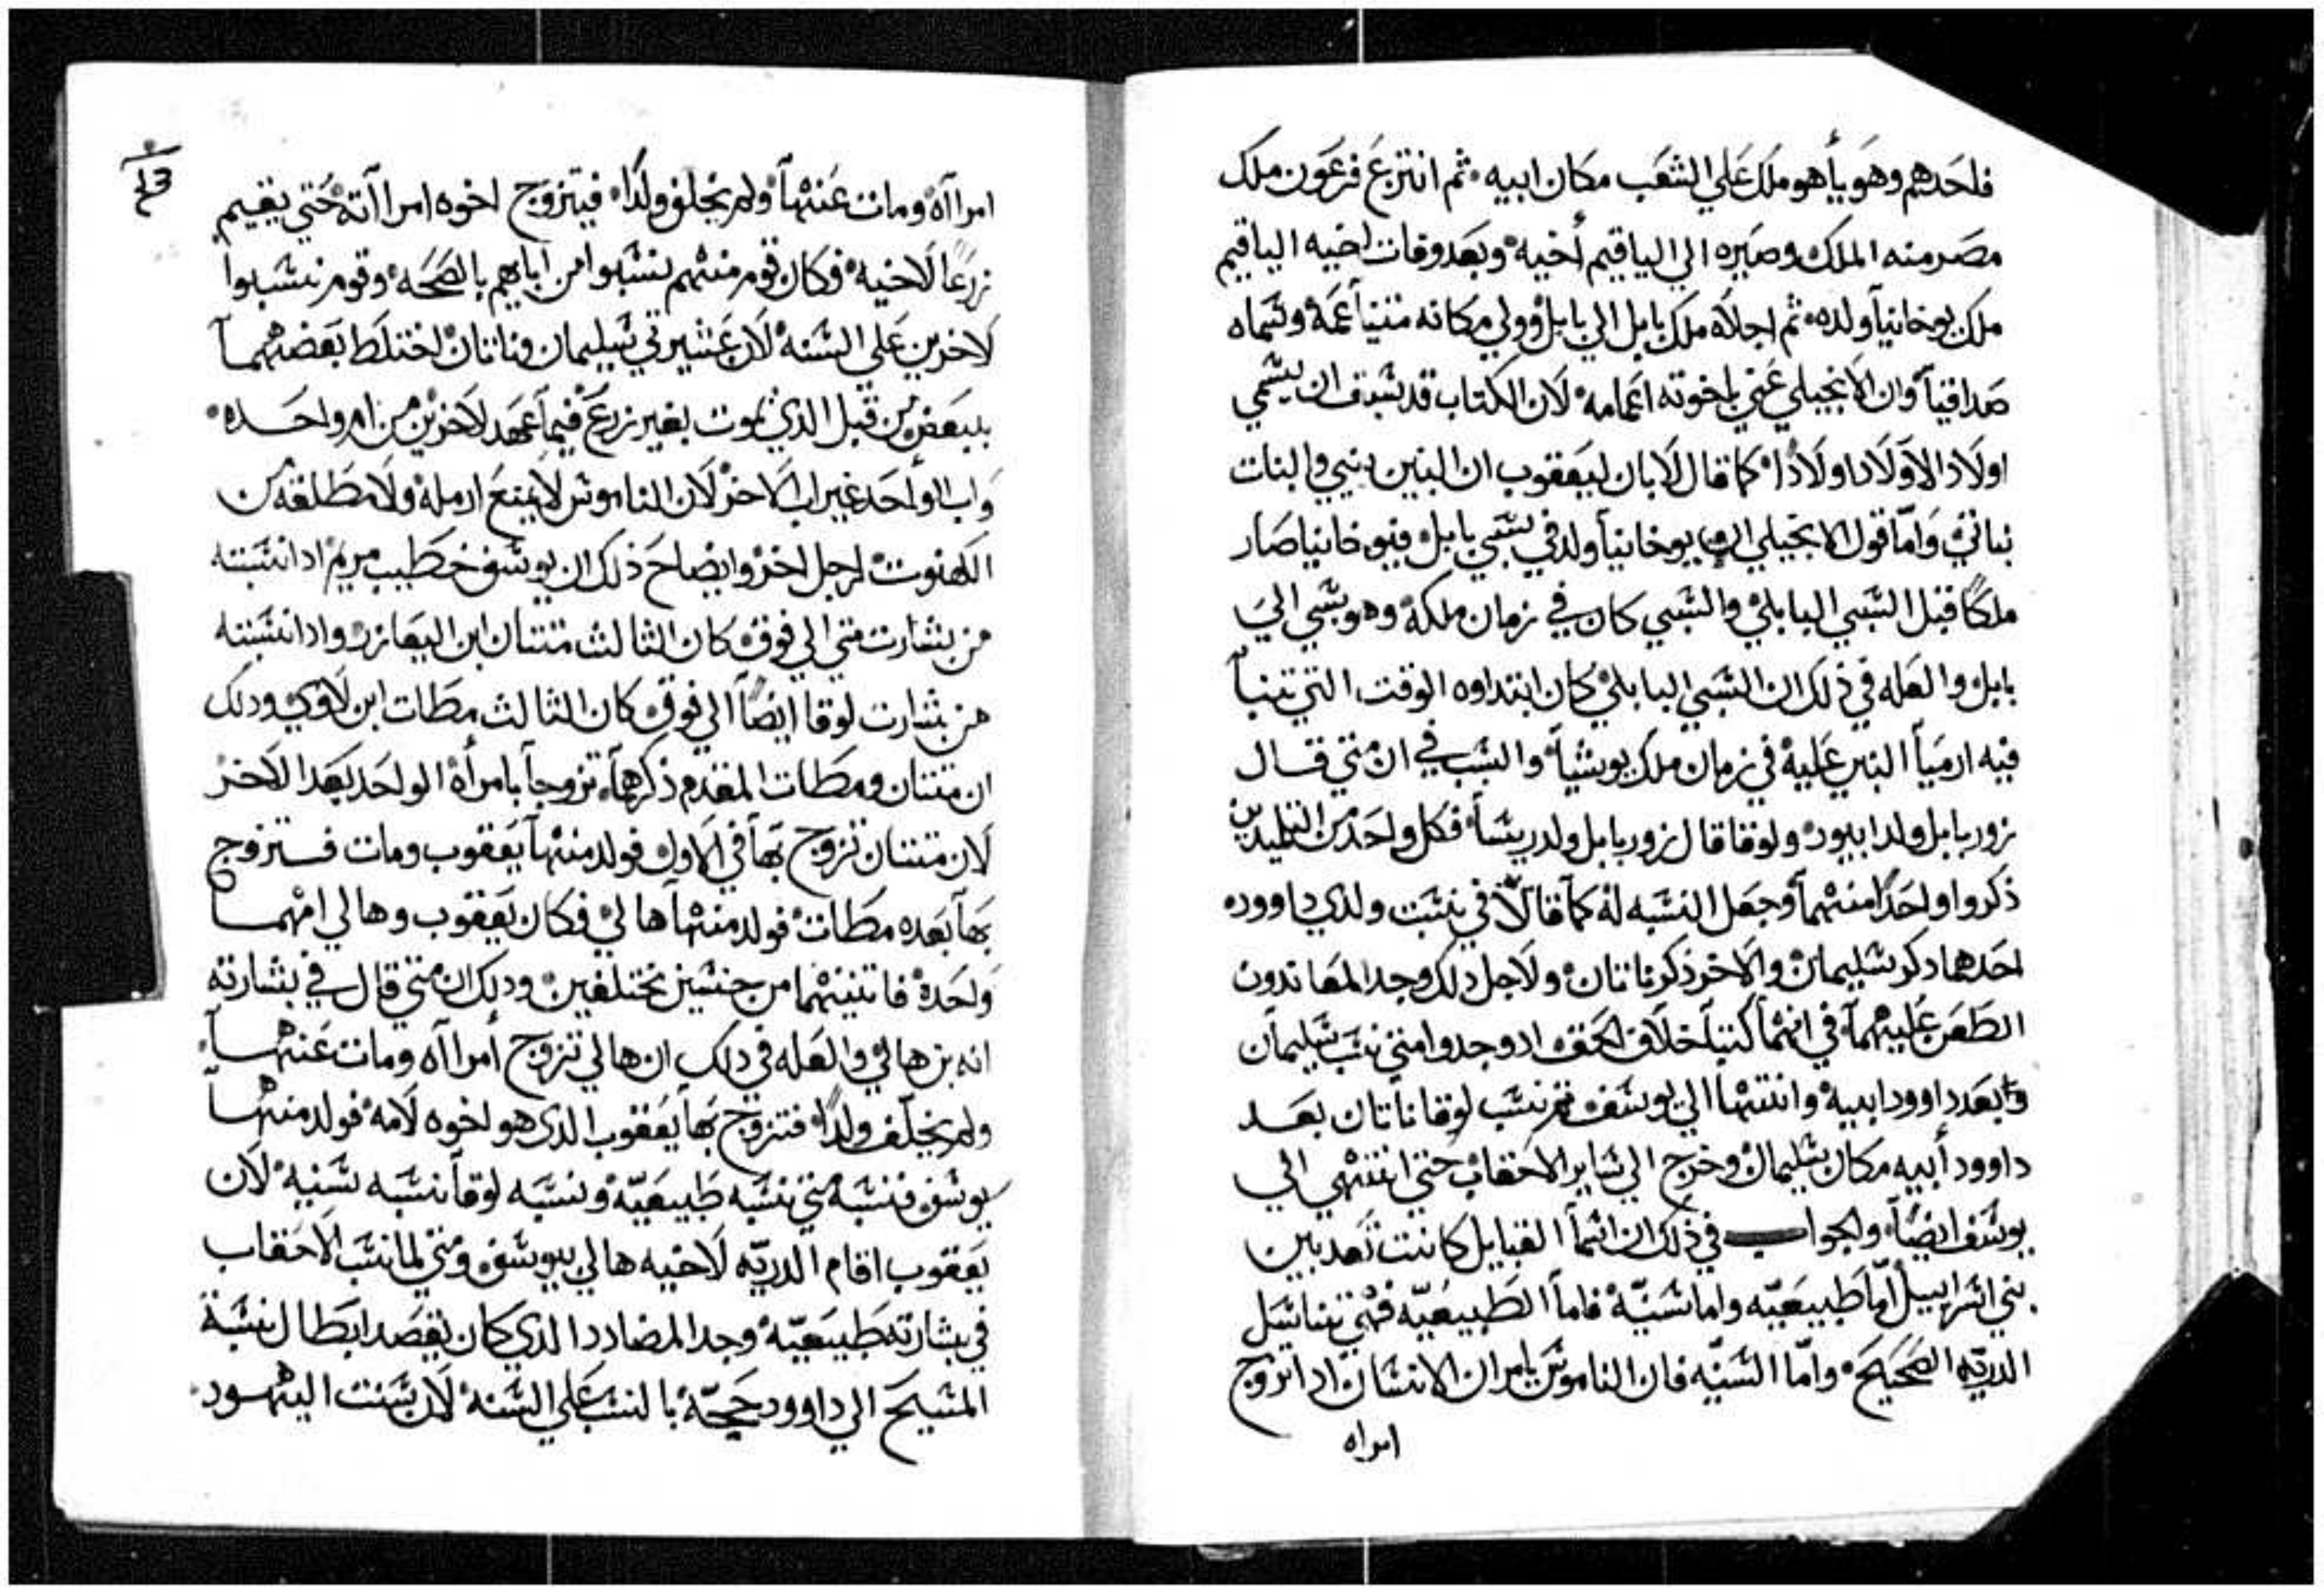 فاحدهم وهو ياهو ملك علي الشعب مكان ابيه ثم انتزع فرعون ملك
مصر منه الملك وصيره الي الياقيم أخيه وبعد وفات اخيه الياقيم
ملك يوخانيا ولده ثم اجلاه ملك بابل الي بابل وولي مكانه متنيا عمه وسماه
صداقيا وان الانجيلي عني باخوته اعمامه لان الكتاب قد سبق ان يسمي
اولاد الاولاد اولاداً كما قال لابان ليعقوب ان البنين بنيي والبنات
بناتي وأما قول الانجيلي ان يوخانيا ولد في سبي بابل فيوخانيا صار
ملكاً قبل السبي البابلي والسبي كان في زمان ملكه وهو سبي الي
بابل والعله في ذلك ان السبي البابلي كان ابتداوه الوقت التي تنبا
فيه ارميا النبي عليه في زمان ملك يوشيا والسبب في ان متي قال
زوربابل ولد ابيود ولوقا قال زوربابل ولد ريسا فكل واحد من التلميذين
ذكروا واحداً منهما وجعل النسبه له كما قالا في نسبت ولدي داوود
احدهما دكر سليمان والاخر ذكر ناتان ولاجل دلك وجد المعاندون
الطعن عليهما في انهما كتبا خلاف الحق اد وجدوا متي نسب سليمان
بعد داوود ابيه وانتها الي يوسف ثم نسب لوقا ناتان بعد
داوود أبيه مكان سليمان وخرج الي ساير الاحقاب حتي انتهي الي
يوسف ايضاً والجواب في ذلك ان اسما القبايل كانت تعد بين
بني اسراييل أما طبيعيّه واما سنيّه فاما الطبيعيّه فهي تناسل
الدريّه الصحيحه واما السنيّه فان الناموس يامر ان الانسان ادا تزوج
امراه
امراآه ومات عنها ولم يخلف ولداً فيتزوج اخوه امراآته حتي يقيم
زرعاً لاخيه فكان قوم منهم ينسبوا من اباهم بالصحه وقوم نسبوا
لاخرين علي السنه لان عشيرتي سليمان وناتان اختلط بعضهما
ببعض من قبل الذي يموت بغير زرع فيما عهد لاخرين من ام واحده
واب الواحد غير اب الاخر لان الناموس لا يمنع ارمله ولا مطلقه من
الكهنوت لرجل اخر وايضاح ذلك ان يوسف خطيب مريم ادا نسبته
من بشارت متي الي فوق كان الثالث متتان ابن اليعازر وادا نسبته
من بشارت لوقا ايضاً الي فوق كان الثالث مطات ابن لاوي ودلك
ان متتان ومطات المقدم ذكرهما تزوجا بامرأة الواحد بعد الاخر
لان متتان تزوج بها في الاول فولد منها يعقوب ومات فتزوج
بها بعده مطات فولد منها هالي فكان يعقوب وهالي امهما
واحدة فاتنينهما من جنسين مختلفين ودلك ان متي قال في بشارته
انه بن هالي والعله في دلك ان هالي تزوج أمراآه ومات عنها
ولم يخلّف ولداً فتزوج بها يعقوب الدى هو اخوه لامه فولد منها
يوسف فنسبه متي نسبه طبيعيّه ونسبه لوقا نسبه سنيه لان
يعقوب اقام الدريّه لاخيه هالي بيوسف ومتي لما نسب الاحقاب
في بشارته طبيعيّه وجد المضادد الدي كان يقصد ابطال نسبة
المسيح الي داوود حجّه بالنسب علي السنه لان سنت اليهود